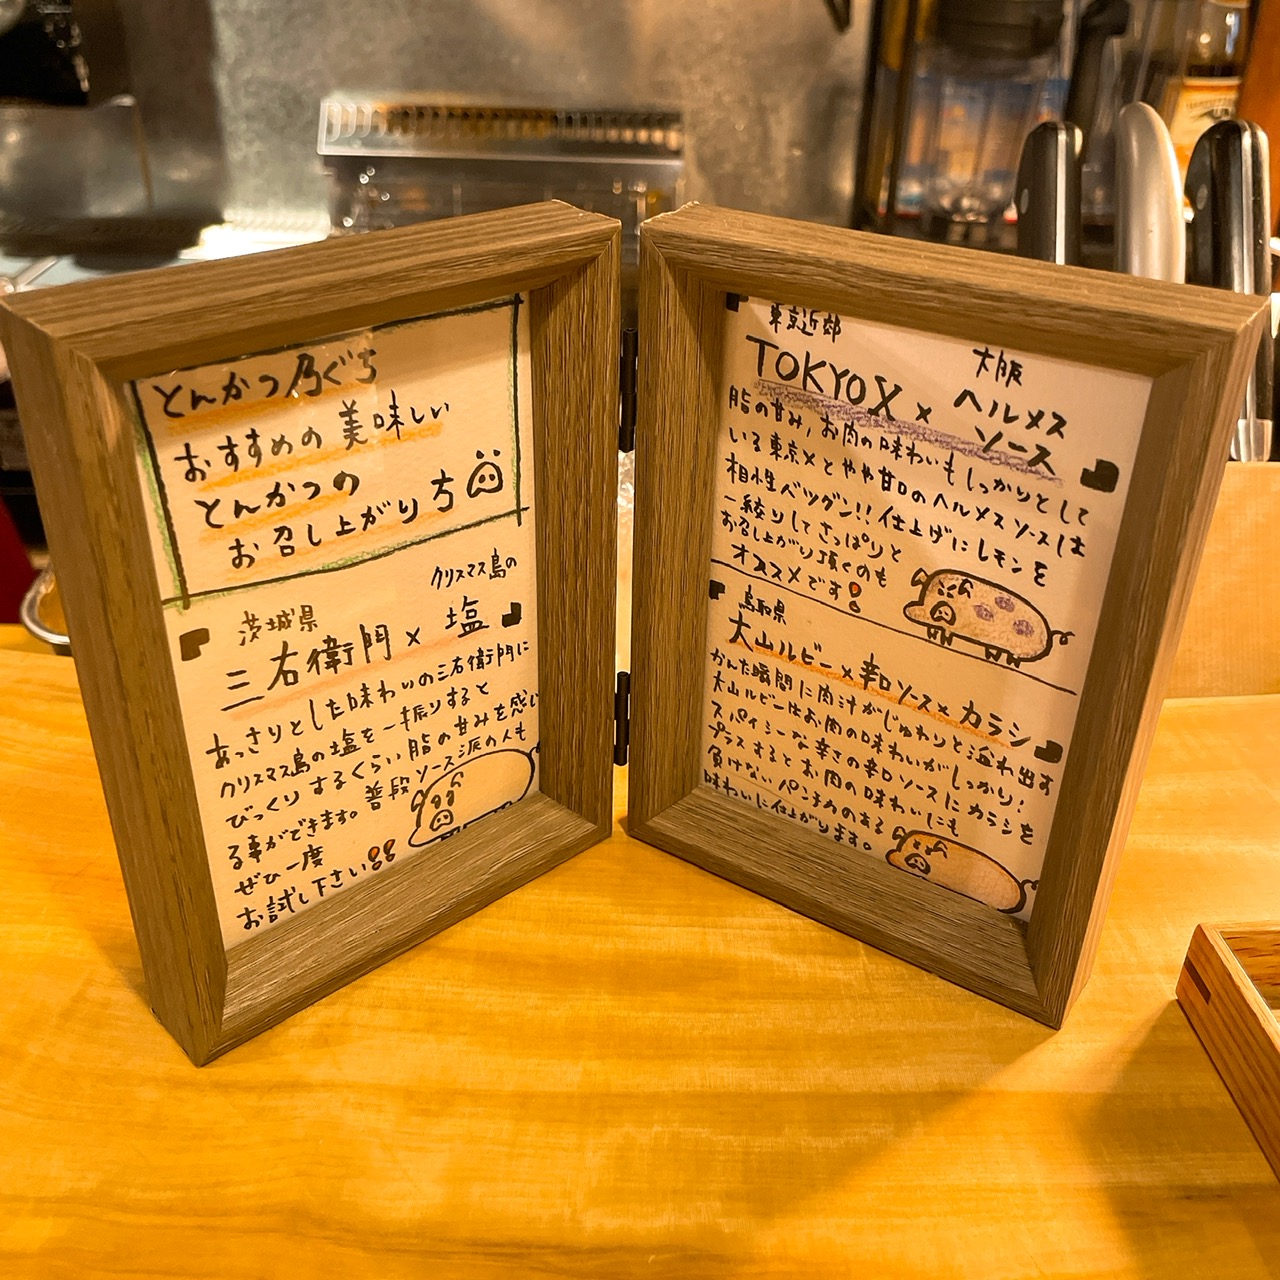 とんかつ乃ぐち
おすすめの美味しい
とんかつの
お召し上がり方
茨城県
クリスマス島の
三右衛門×塩
あっさりとした味わいの三右衛門に
クリスマス島の塩を一振りすると
びっくりするくらい脂の甘みを感じ
る事ができます。普段ソース派の人も
ぜひ一度
お試し下さい!!
東京近郊
大阪
TOKYO X × ヘルメス
ソース
脂の甘み,お肉の味わいもしっかりとして
いる東京Xとやや甘口のヘルメスソースは
相性バツグン!!仕上げにレモンを
一絞りしてさっぱりと
お召し上がり頂くのも
オススメです!
鳥取県
大山ルビー×辛口ソース×カラシ
かんだ瞬間に肉汁がじゅわりと溢れ出す
大山ルビーはお肉の味わいがしっかり!
スパイシーな辛さの辛口ソースにカラシを
プラスするとお肉の味わいにも
負けないパンチ力のある
味わいに仕上がります。